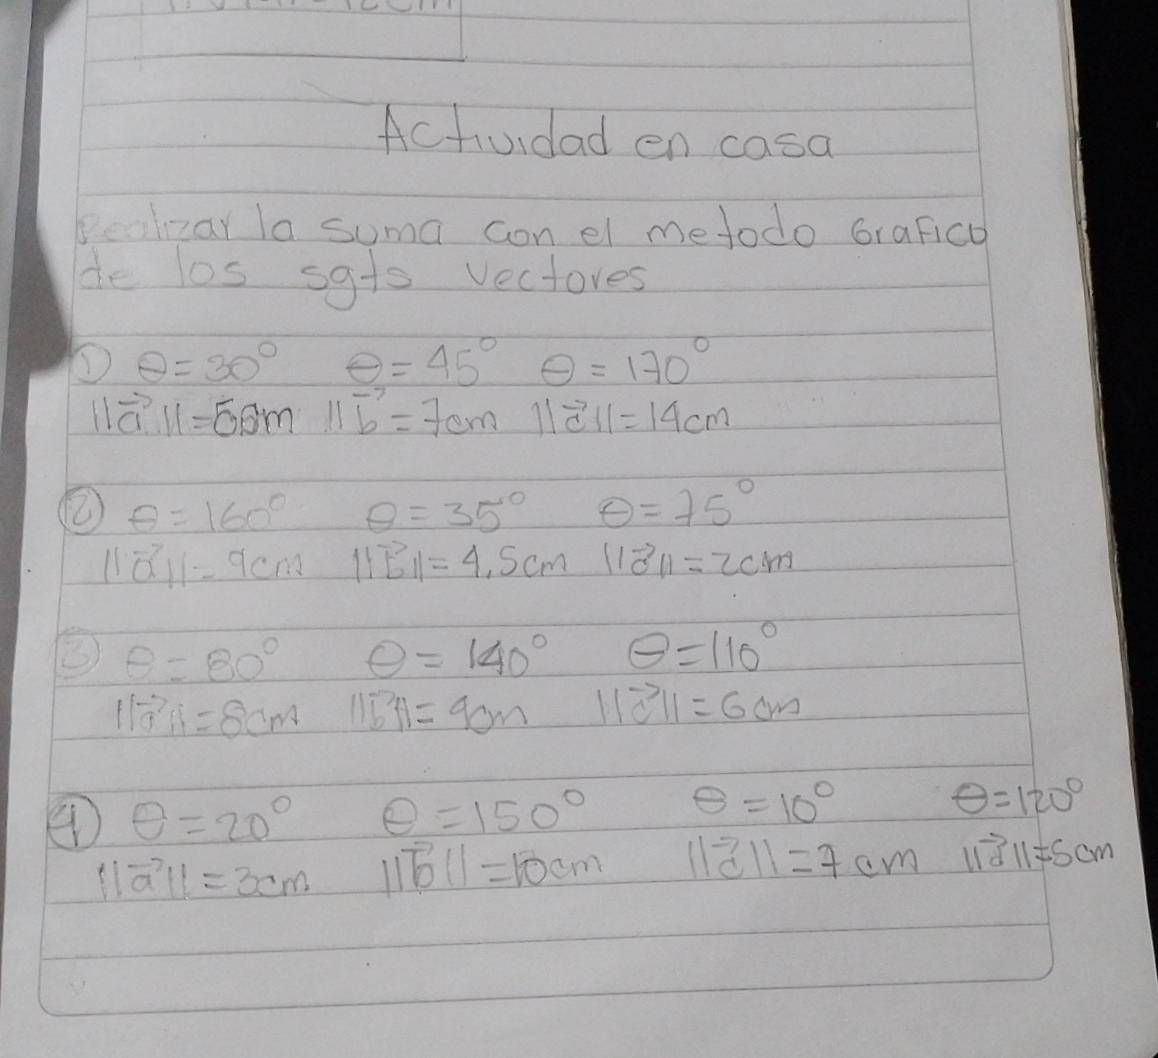 Actividad en casa
Realizar la suma con el metodo Grafico
de los sgts vectores
① θ = 30° θ = 45° θ = 170°
||a⃗|| = 5cm ||b⃗ = 7cm ||c⃗|| = 14cm
② θ = 160° θ = 35° θ = 75°
||a⃗|| = 9cm ||b⃗|| = 4,5cm ||c⃗|| = 2cm
③ θ = 80° θ = 140° θ = 110°
||a⃗|| = 8cm ||b⃗|| = 9cm ||c⃗|| = 6cm
④ θ = 20° θ = 150° θ = 10° θ = 120°
||a⃗|| = 3cm ||b⃗|| = 10cm ||c⃗|| = 7cm ||d⃗|| = 5cm